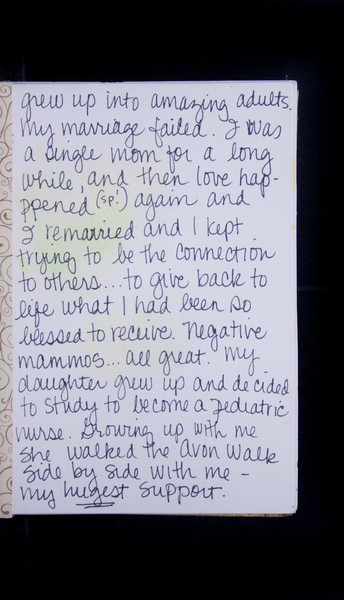 grew up into amazing adults.
My marriage failed. I was
a single mom for a long
while, and then love hap-
ppened (sp!) again and
I remarried and I kept
trying to be the connection
to others...to give back to
life what I had been so
blessed to receive. Negative
mammos... all great. My
daughter grew up and decided
to study to become a pediatric
nurse. Growing up with me
she walked the Avon Walk
side by side with me -
my hugest support.